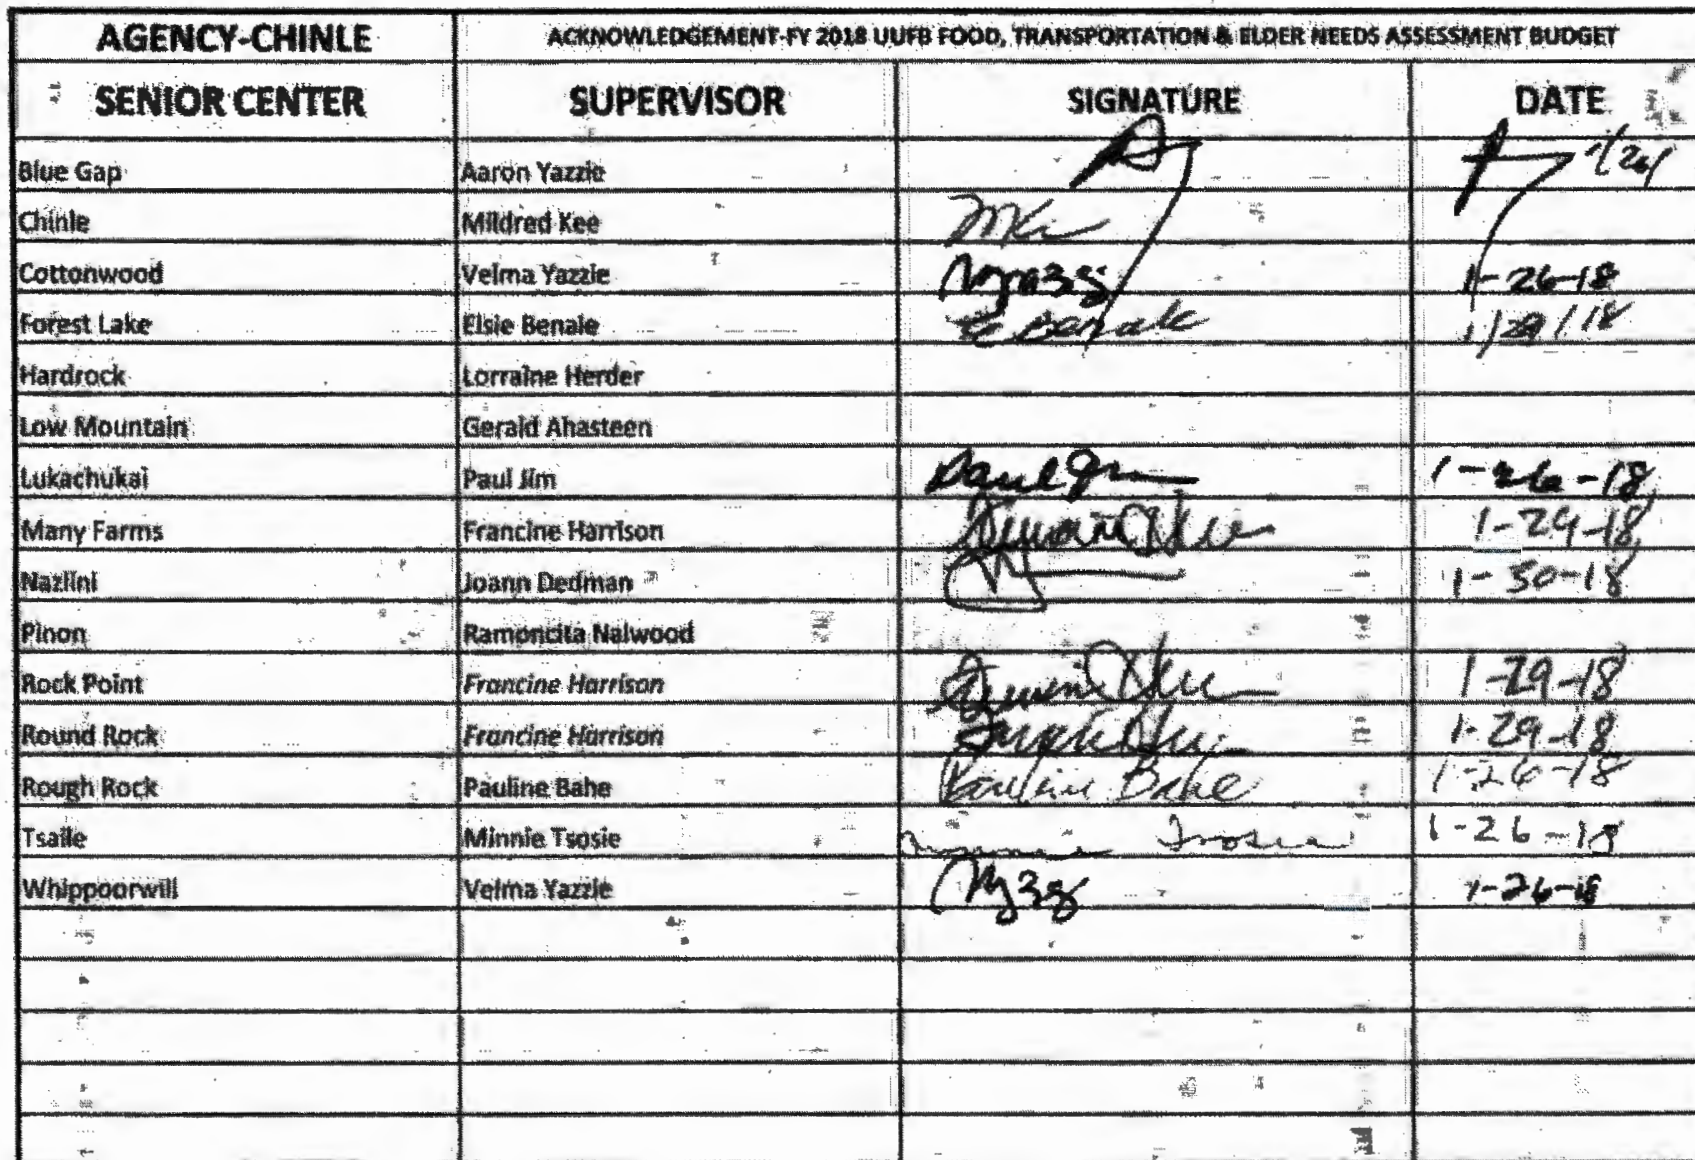 AGENCY-CHINLE ACKNOWLEDGEMENT-FY 2018 UUFB FOOD, TRANSPORTATION & ELDER NEEDS ASSESSMENT BUDGET
SENIOR CENTER SUPERVISOR SIGNATURE DATE
Blue Gap Aaron Yazzie
Chinle Mildred Kee
Cottonwood Velma Yazzie 1-26-18
Forest Lake Elsie Benale E Benale
Hardrock Lorraine Herder
Low Mountain Gerald Ahasteen
Lukachukai Paul Jim Paul Jim 1-26-18
Many Farms Francine Harrison 1-29-18
Nazlini Joann Dedman 1-30-18
Pinon Ramoncita Nalwood
Rock Point Francine Harrison 1-29-18
Round Rock Francine Harrison 1-29-18
Rough Rock Pauline Bahe Pauline Bahe 1-26-18
Tsaile Minnie Tsosie Minnie Tsosie 1-26-18
Whippoorwill Velma Yazzie 1-26-18